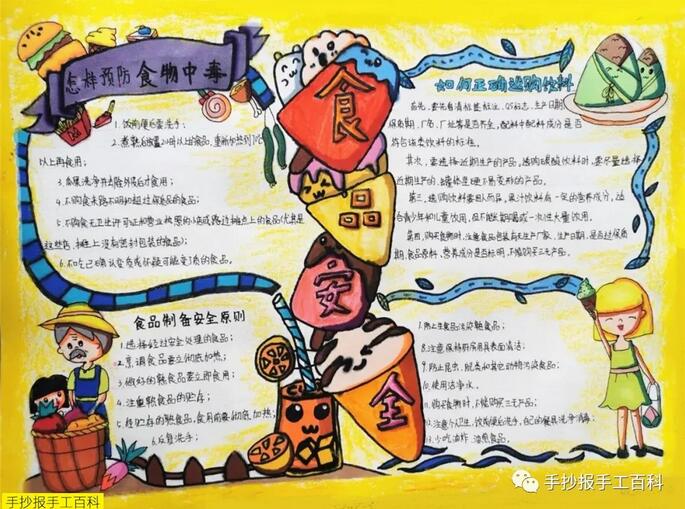 怎样预防食物中毒
1.饭前便后要洗手;
以上再食用;
3.瓜果洗净并去除外皮后才食用;
4.不购食来路不明和超过保质期的食品;
5.不购食无卫生许可证和营业执照的小店或路边摊点上的食品(尤其是
这些店、摊上没有密封包装的食品);
6.不吃已确认变质或怀疑可能变了质的食品。
食品安全
如何正确选购饮料
首先,要先看清标签标注,QS标志、生产日期,
保质期、厂名、厂址等是否齐全,配料中配料成分是否
符合该类饮料的标准。
其次,要选择近期生产的产品,选购碳酸饮料时,要尽量选择
近期生产的、罐体坚硬不易变形的产品。
第三,选购饮料要因人而异,果汁饮料有一定的营养成分,适
合青少年和儿童饮用,但不能长期喝或一次性大量饮用。
第四,购买食物时,注意食品包装有无生产厂家、生产日期,是否过保质
期,食品原料、营养成分是否标明,不能购买三无产品。
食品制备安全原则
1.选择经过安全处理的食品;
2.烹调食品要立彻底加热;
3.做好的熟食品要立即食用;
4.注意熟食品的贮存;
5.经贮存的熟食品,食用前要彻底加热;
6.反复洗手;
8.注意保持厨房用具表面清洁;
9.防止昆虫、鼠类和其它动物污染食品;
10.使用洁净水。
11.购买食物时,不能购买三无产品;
12.注意个人卫生,饭前便后洗手,自己的餐具洗净消毒;
13.少吃油炸、油煎食品
手抄报手工百科
手抄报手工百科